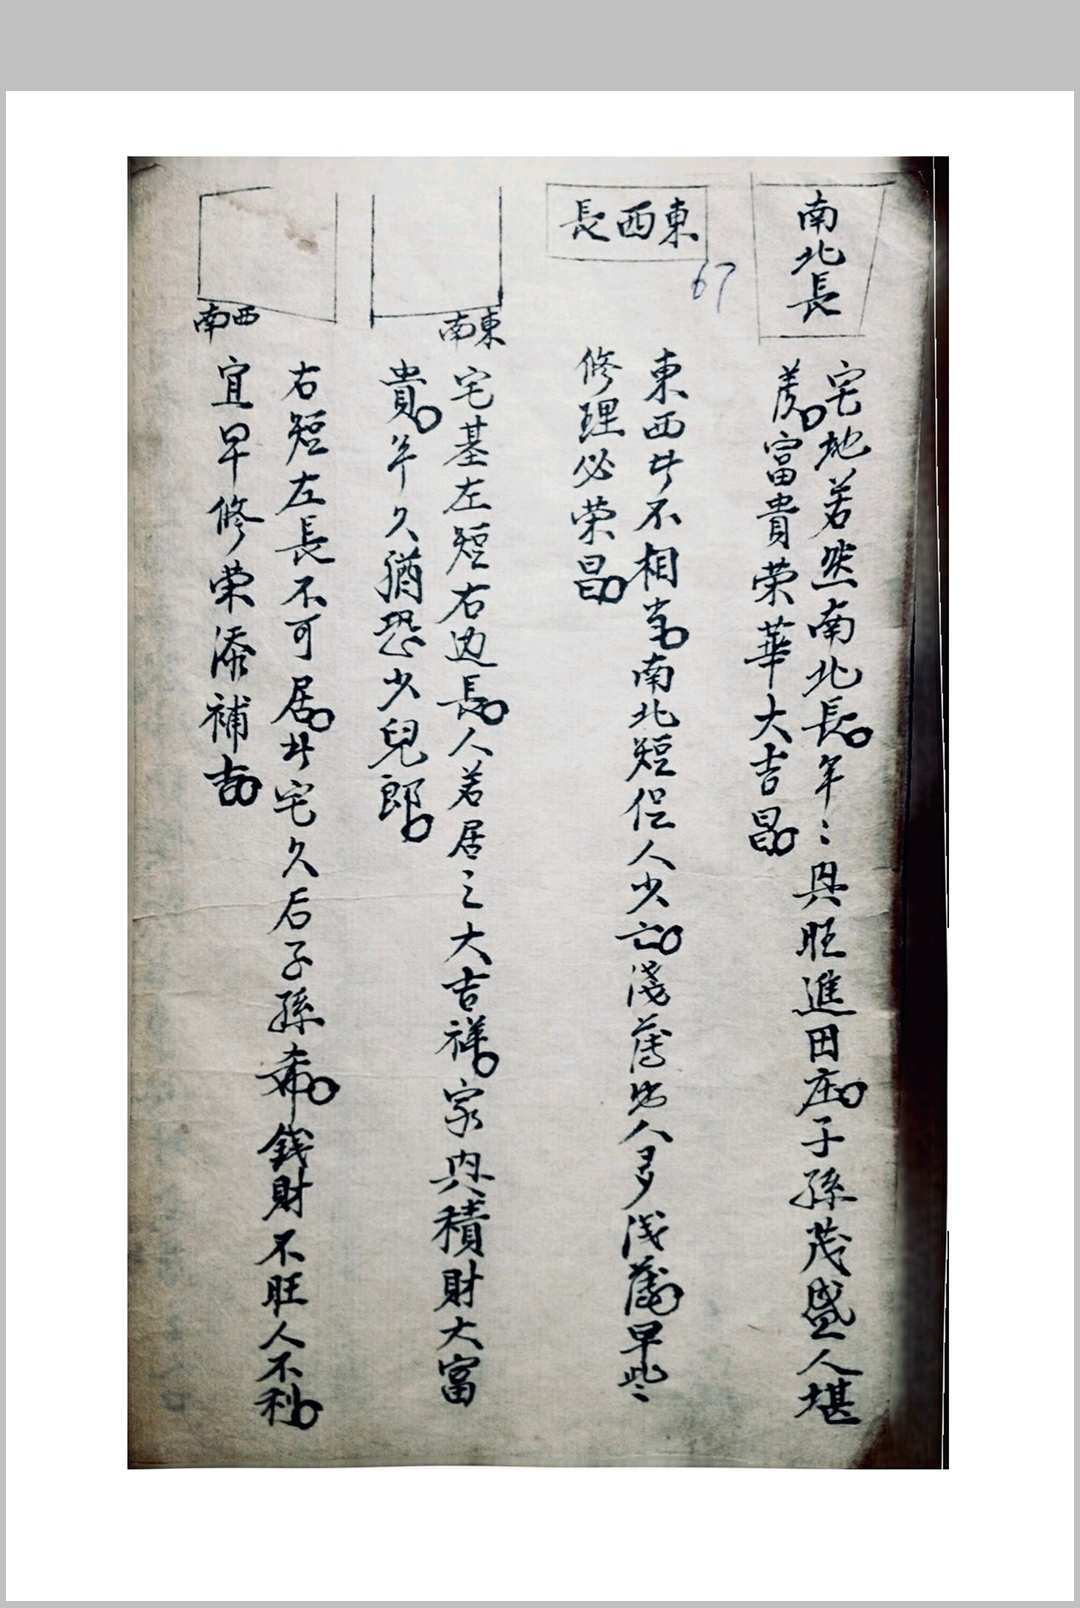 南北長
宅地若然南北長年〻興旺進田庄子孫茂盛人堪
羨富貴荣華大吉昌
東西長
67
東西廾不相當南北短促人少亡淺薄
人多浅薄早些〻
修理必荣昌
東南
宅基左短右边長人若居之大吉祥家興積財大富
貴年久猶恐少兒郎
西南
右短左長不可居廾宅久后子孫希錢財不旺人不利
宜早修荣添補吉